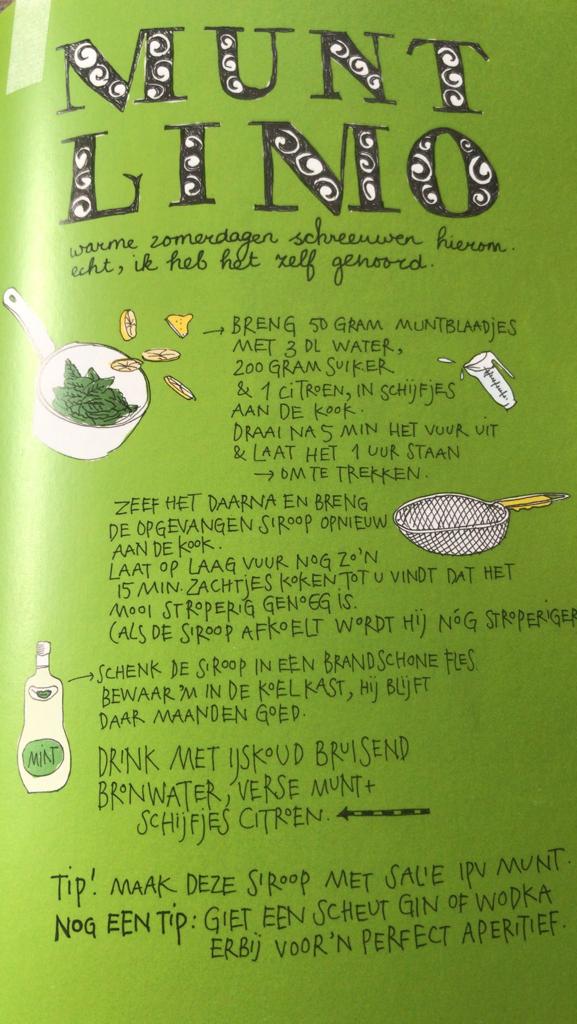 MUNT
LIMO
warme zomerdagen schreeuwen hierom.
echt, ik heb het zelf gehoord.
→ BRENG 50 GRAM MUNTBLAADJES
MET 3 DL WATER,
200 GRAM SUIKER
& 1 CITROEN, IN SCHIJFJES
AAN DE KOOK.
DRAAI NA 5 MIN HET VUUR UIT
& LAAT HET 1 UUR STAAN
→ OM TE TREKKEN.
ZEEF HET DAARNA EN BRENG
DE OPGEVANGEN SIROOP OPNIEUW
AAN DE KOOK.
LAAT OP LAAG VUUR NOG ZO'N
15 MIN. ZACHTJES KOKEN TOT U VINDT DAT HET
MOOI STROPERIG GENOEG IS.
(ALS DE SIROOP AFKOELT WORDT HIJ NÓG STROPERIGER
→ SCHENK DE SIROOP IN EEN BRANDSCHONE FLES.
BEWAAR 'M IN DE KOELKAST, HIJ BLIJFT
DAAR MAANDEN GOED.
MINT
DRINK MET IJSKOUD BRUISEND
BRONWATER, VERSE MUNT +
SCHIJFJES CITROEN.
TIP! MAAK DEZE SIROOP MET SALIE IPV MUNT.
NOG EEN TIP: GIET EEN SCHEUT GIN OF WODKA
ERBIJ VOOR 'N PERFECT APERITIEF.